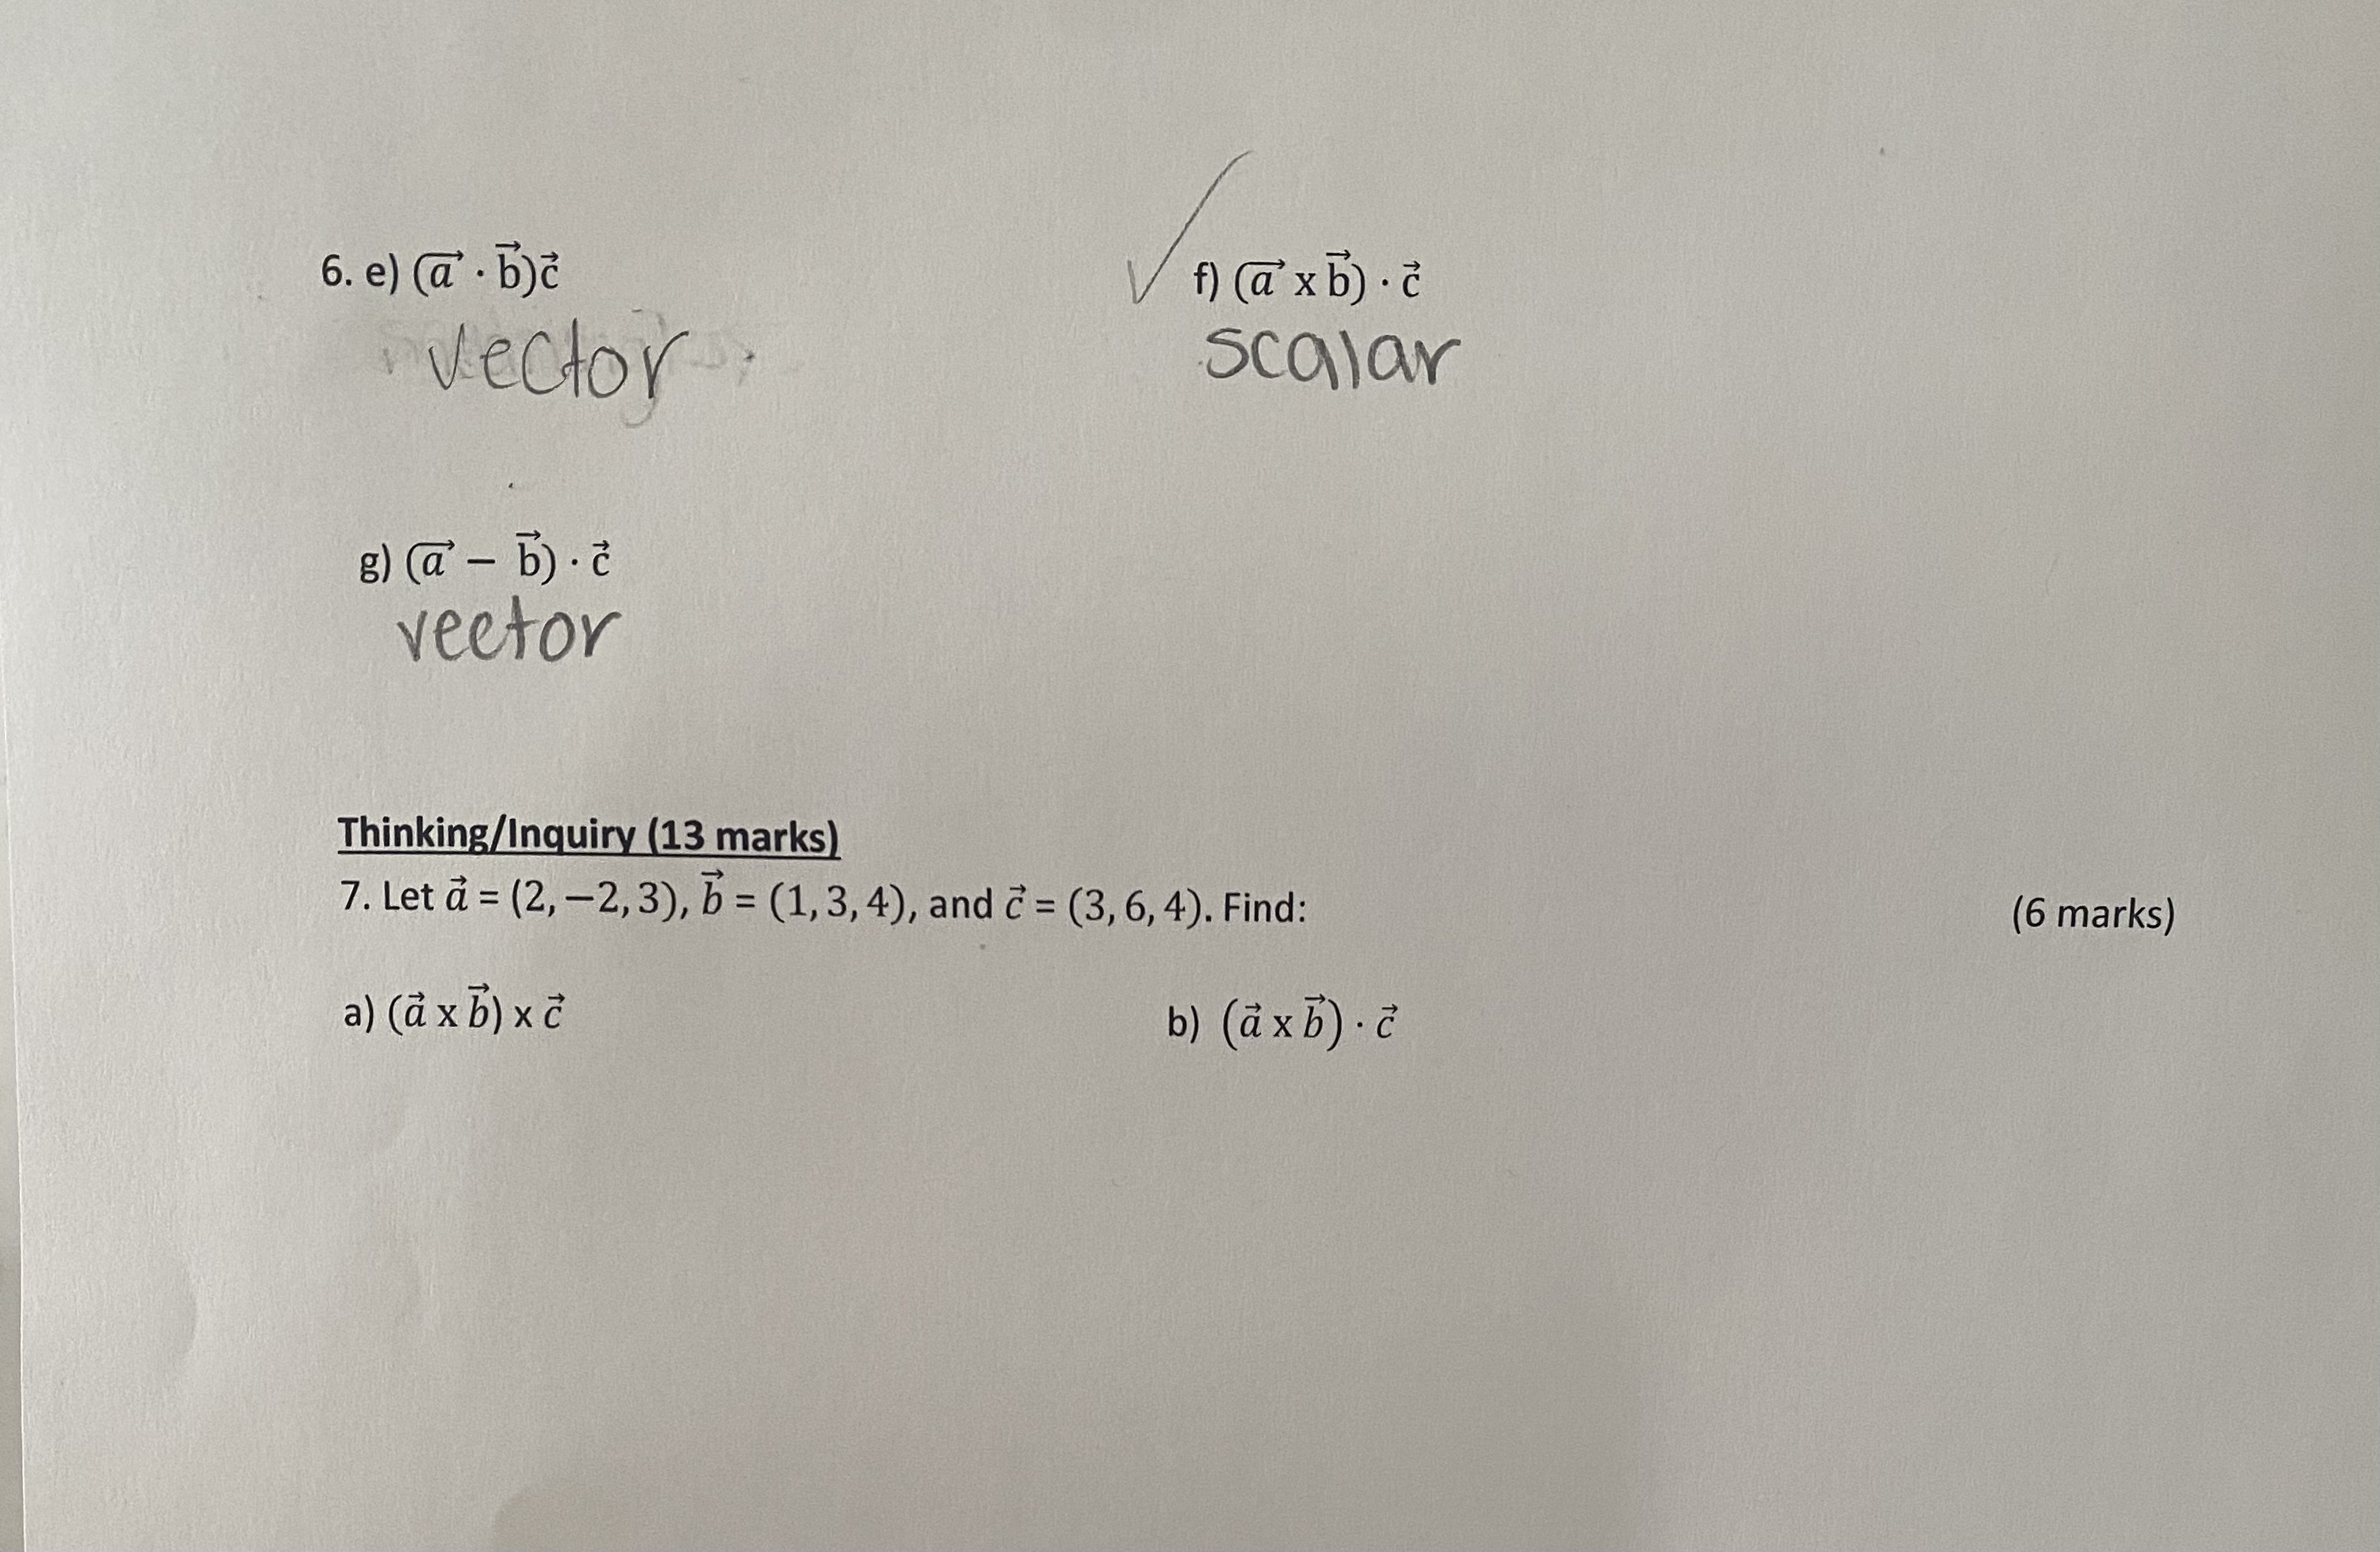 6. e) (a⃗ · b⃗)c⃗
f) (a⃗ x b⃗) · c⃗
vector
scalar
g) (a⃗ − b⃗) · c⃗
vector
Thinking/Inquiry (13 marks)
7. Let a⃗ = (2, −2, 3), b⃗ = (1, 3, 4), and c⃗ = (3, 6, 4). Find:
(6 marks)
a) (a⃗ x b⃗) x c⃗
b) (a⃗ x b⃗) · c⃗